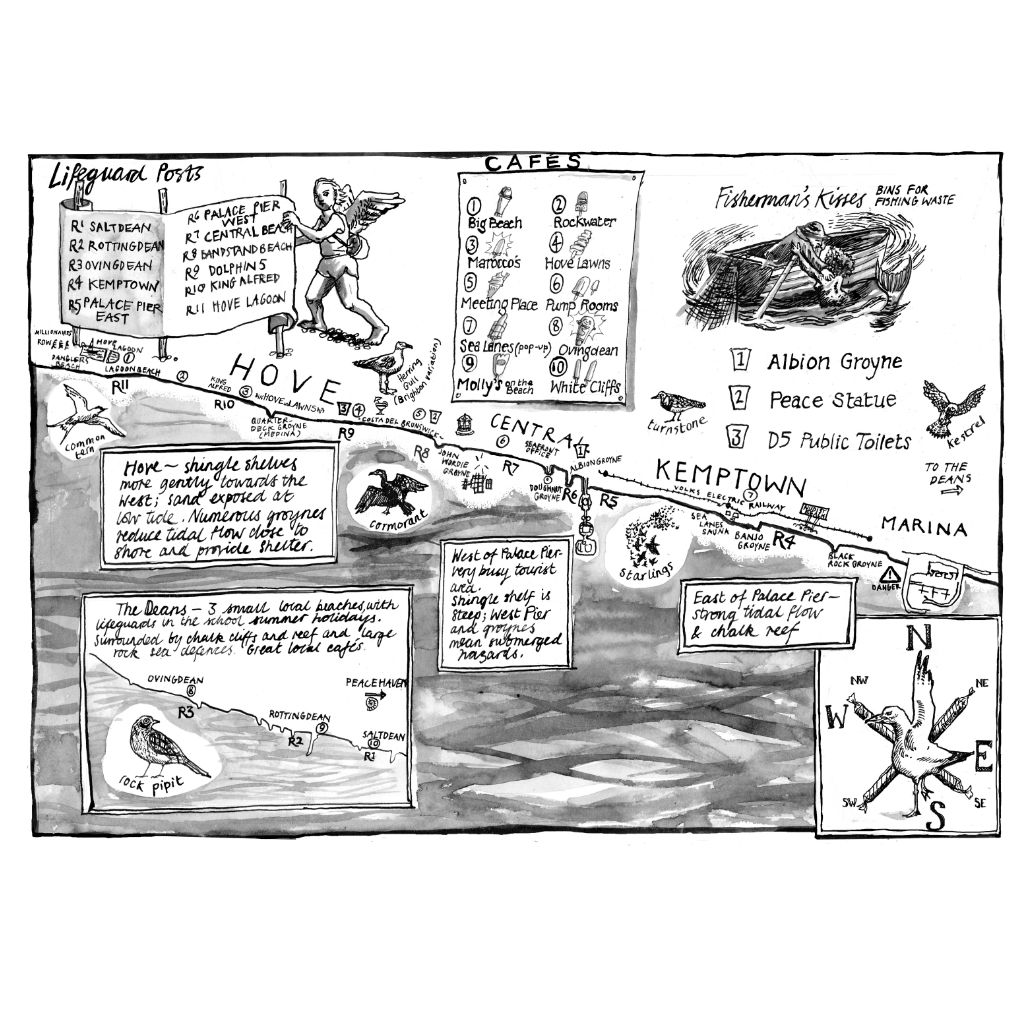 Lifeguard Posts
R1 SALTDEAN
R2 ROTTINGDEAN
R3 OVINGDEAN
R4 KEMPTOWN
R5 PALACE PIER
EAST
R6 PALACE PIER
WEST
R7 CENTRAL BEACH
R8 BANDSTAND BEACH
R9 DOLPHINS
R10 KING ALFRED
R11 HOVE LAGOON
CAFÉS
1 Big Beach
2 Rockwater
3 Marocco's
4 Hove Lawns
5 Meeting Place
6 Pump Rooms
7 Sea Lanes (POP-UP)
8 Ovingdean
9 Molly's on the Beach
10 White Cliffs
Fisherman's Kisses
BINS FOR
FISHING WASTE
1 Albion Groyne
2 Peace Statue
3 D5 Public Toilets
turnstone
kestrel
TO THE
DEANS
HOVE
HOVE
LAGOON
LAGOON BEACH
1
2
R11
KING
ALFRED
3
R10
HOVE LAWNS
QUARTER-
DECK GROYNE
(MEDINA)
3
4
R9
Herring
Gull
(Brighton variation)
COSTA DEL BRUNSWICK
5
2
R8
common
tern
cormorant
CENTRAL
6
JOHN
WORDIE
GROYNE
R7
SEAFRONT
OFFICE
1
ALBION GROYNE
DOUGHNUT
GROYNE
R6
R5
KEMPTOWN
VOLKS ELECTRIC RAILWAY
7
SEA
LANES
SAUNA
BANJO
GROYNE
R4
BLACK
ROCK GROYNE
MARINA
DANGER
Starlings
Hove ~ shingle shelves
more gently towards the
West; sand exposed at
low tide. Numerous groynes
reduce tidal flow close to
shore and provide shelter.
West of Palace Pier-
very busy tourist
area.
Shingle shelf is
steep; West Pier
and groynes
mean submerged
hazards.
East of Palace Pier—
strong tidal flow
& chalk reef
The Deans — 3 small local beaches, with
lifeguards in the school summer holidays.
Surrounded by chalk cliffs and reef and large
rock sea defences. Great local cafés.
OVINGDEAN
8
R3
PEACEHAVEN
ROTTINGDEAN
9
R2
SALTDEAN
10
R1
rock pipit
N
NW
NE
W
E
SW
SE
S